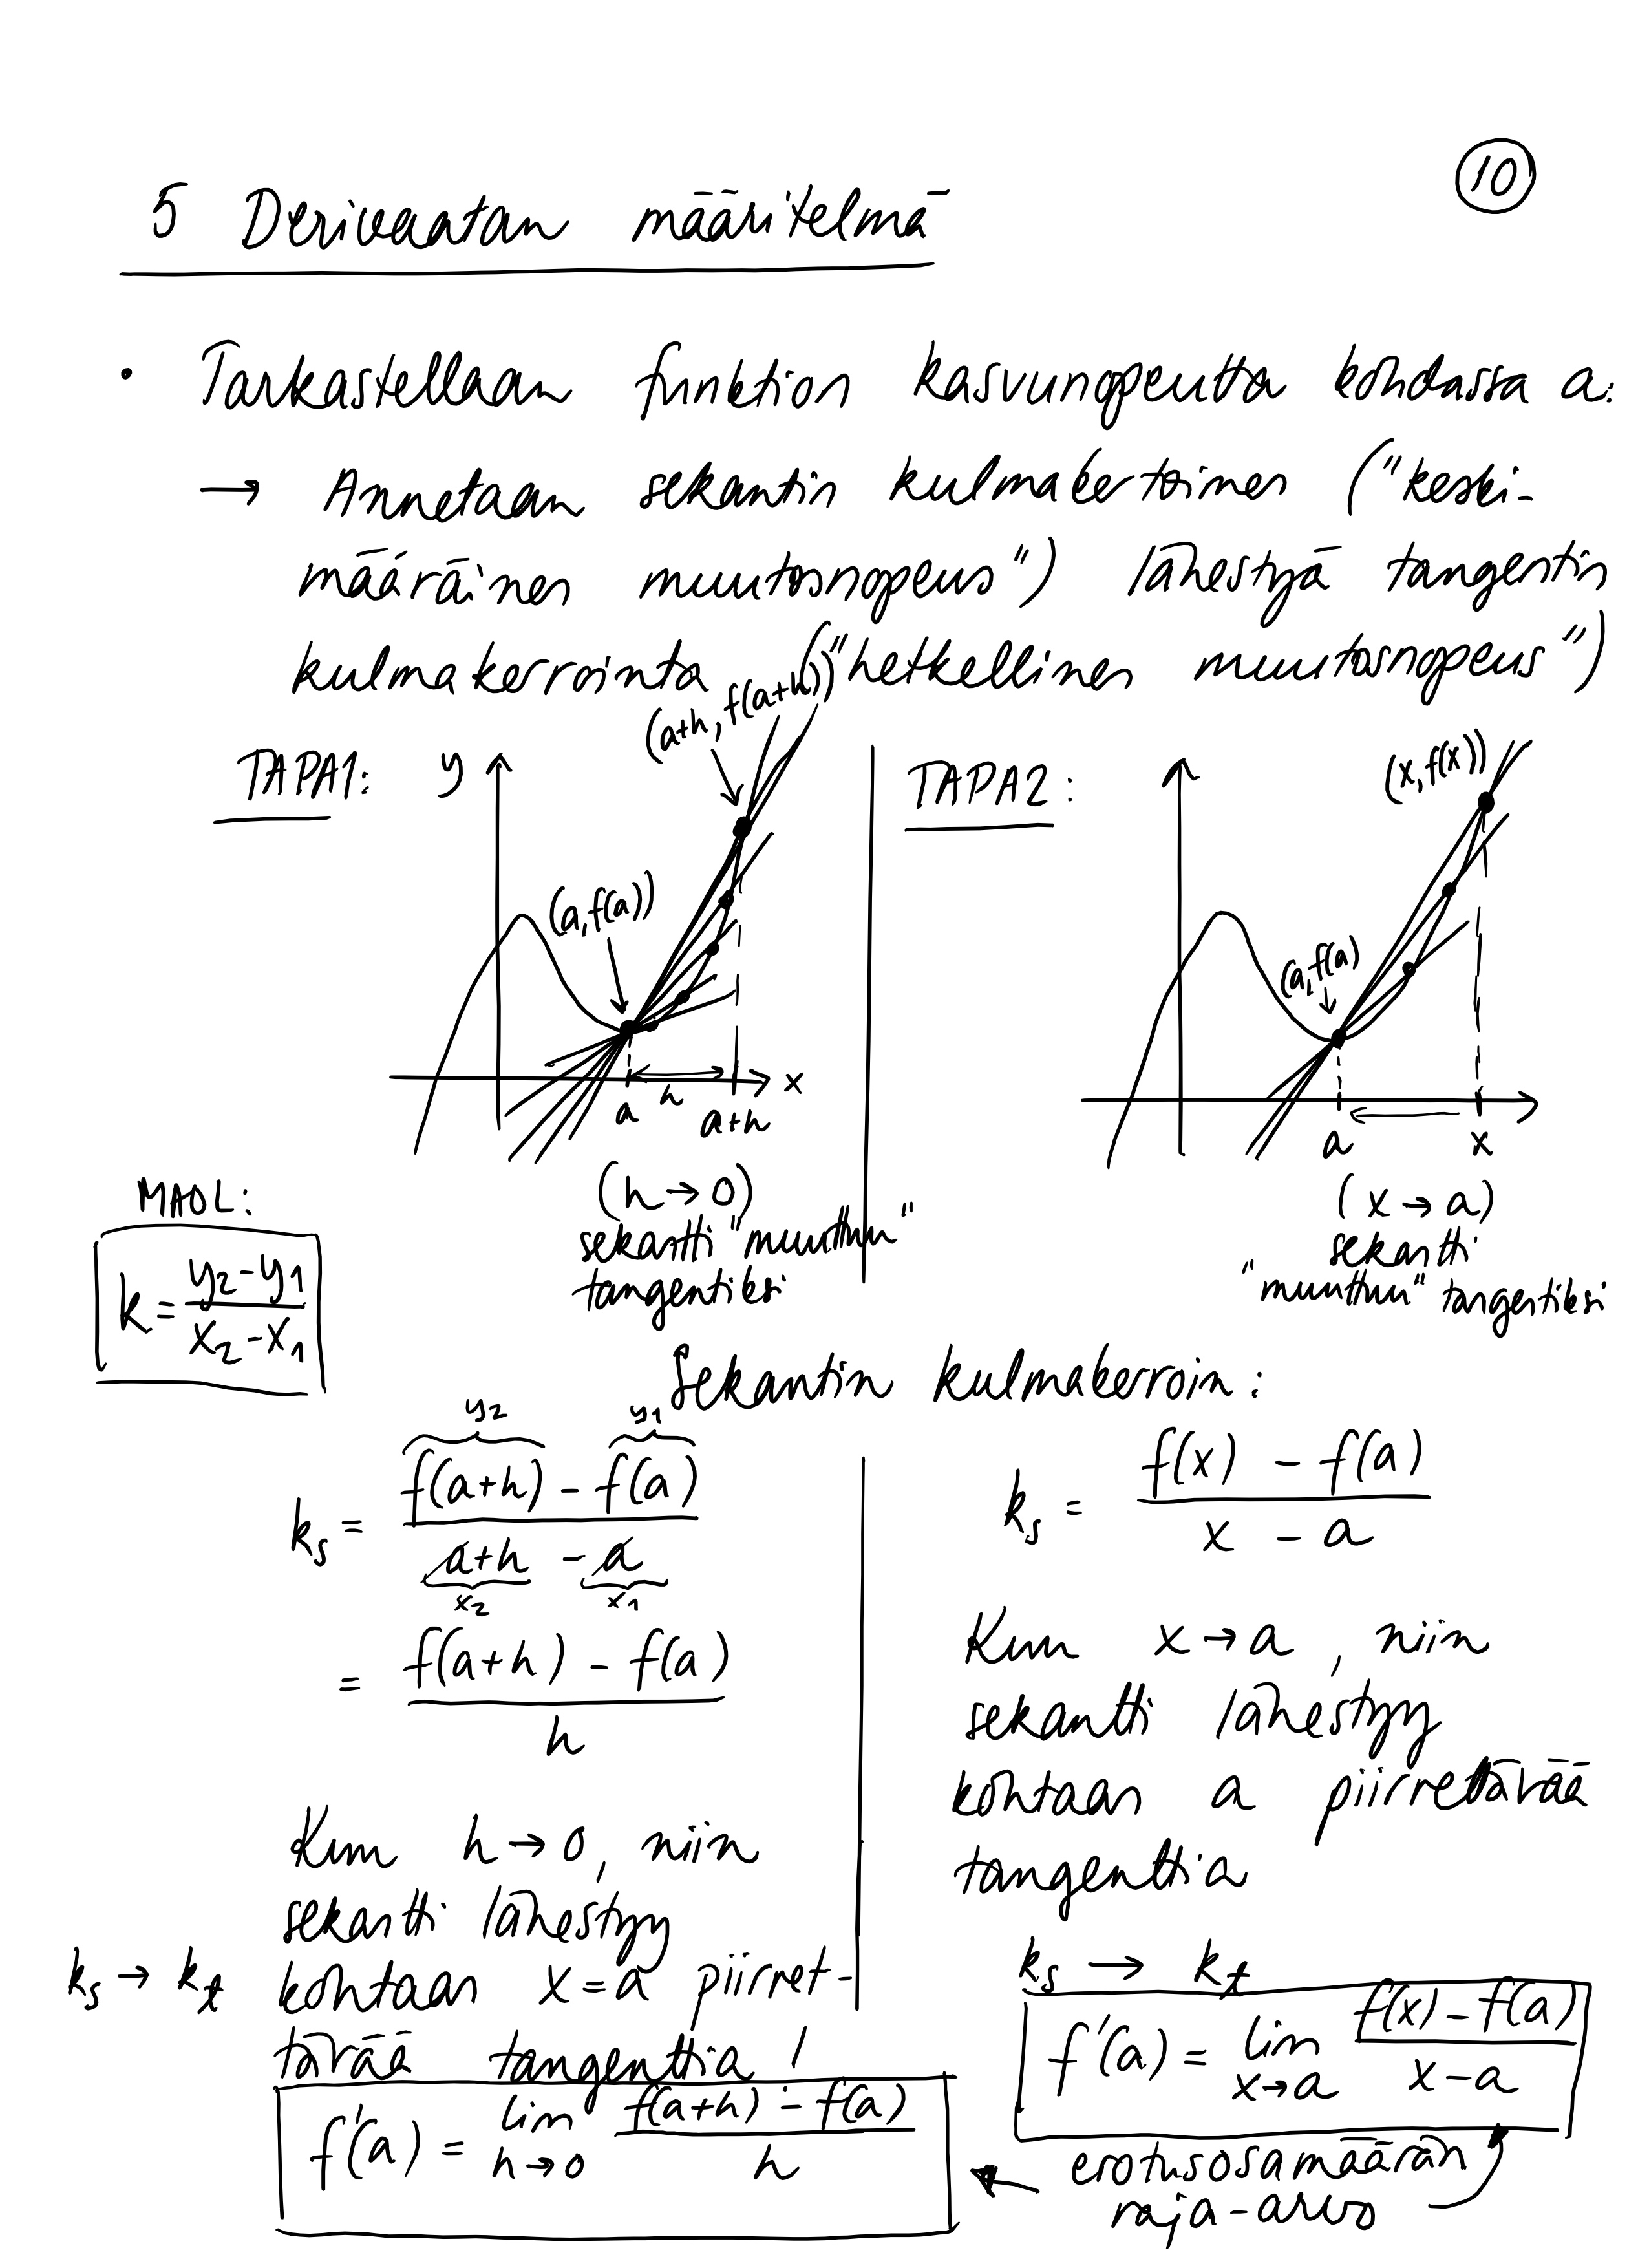 10
5 Derivaatan määritelmä
• Tarkastellaan funktion kasvunopeutta kohdassa a:
→ Annetaan sekantin kulmakertoimen ("keski-
määräinen muutosnopeus") lähestyä tangentin
kulmakerrointa ("hetkellinen muutosnopeus")
TAPA1:
y
(a+h, f(a+h))
(a, f(a))
x
a
h
a+h
(h → 0)
sekantti "muuttuu"
tangentiksi
TAPA2:
(x, f(x))
(a, f(a)
a
x
(x → a)
sekantti
"muuttuu" tangentiksi
MAOL:
k = (y₂ - y₁) / (x₂ - x₁)
Sekantin kulmakerroin:
y₂ y₁
kₛ = (f(a+h) - f(a)) / (a+h - a)
x₂ x₁
= (f(a+h) - f(a)) / h
Kun h → 0, niin
sekantti lähestyy
kohtaan x = a piirret-
tävää tangenttia
kₛ → kₜ
f'(a) = lim h→0 (f(a+h) - f(a)) / h
kₛ = (f(x) - f(a)) / (x - a)
Kun x → a, niin
sekantti lähestyy
kohtaan a piirrettävää
tangenttia
kₛ → kₜ
f'(a) = lim x→a (f(x) - f(a)) / (x - a)
erotusosamäärän
raja-arvo